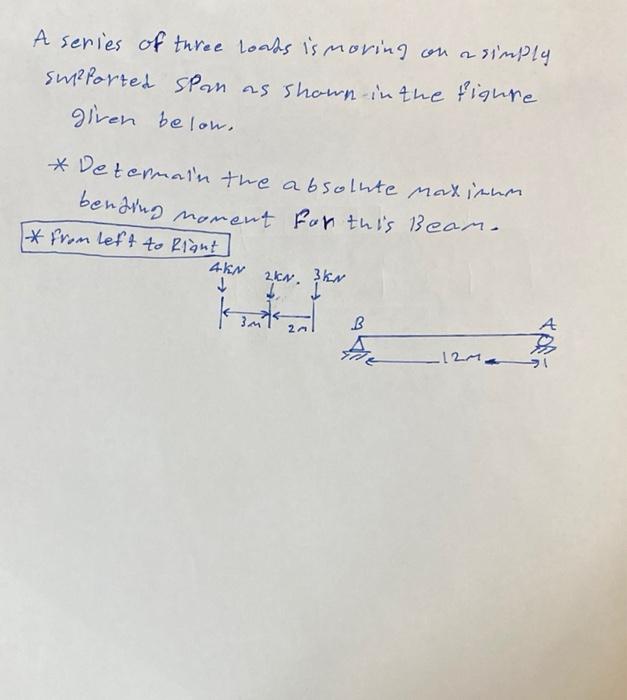 A series of three loads is moving on a simply
supported span as shown in the figure
given below.
* Determain the absolute maximum
bending moment for this Beam.
* from left to Right
4kN 2kN. 3kN
3m 2m
B A
12m